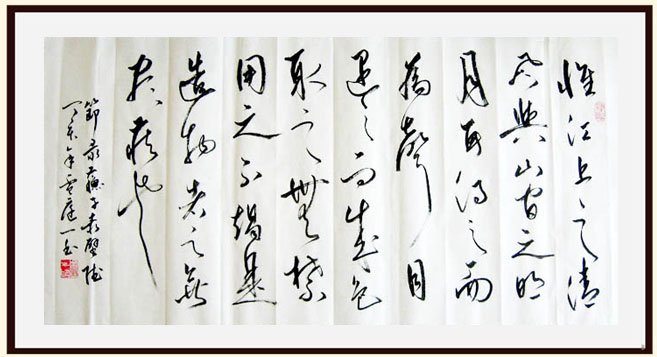 惟江上之清
風與山間之明
月耳得之而
為聲目
遇之而成色
取之無禁
用之不竭是
造物者之無
盡藏也
節錄蘇子赤壁賦
丁亥年